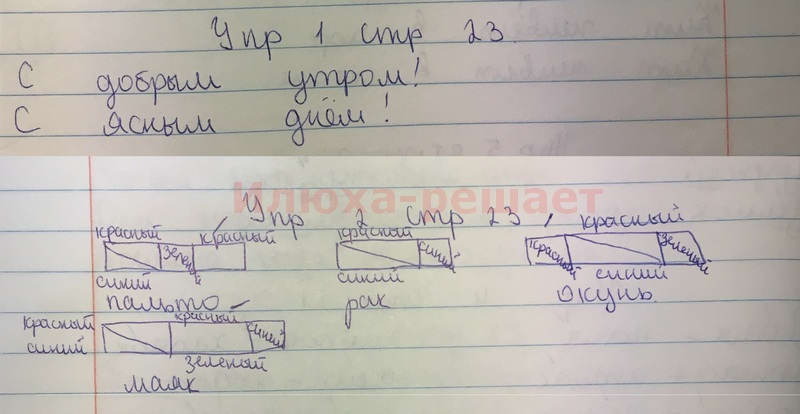 Упр 1 стр 23.
С добрым утром!
С ясным днём!
Илюха-решает
Упр 2 стр 23.
красный зелен й красный
синий
пальто
красный синий
синий
рак
красный
красный зеленый
синий
окунь
красный красный синий
синий зеленый
маяк